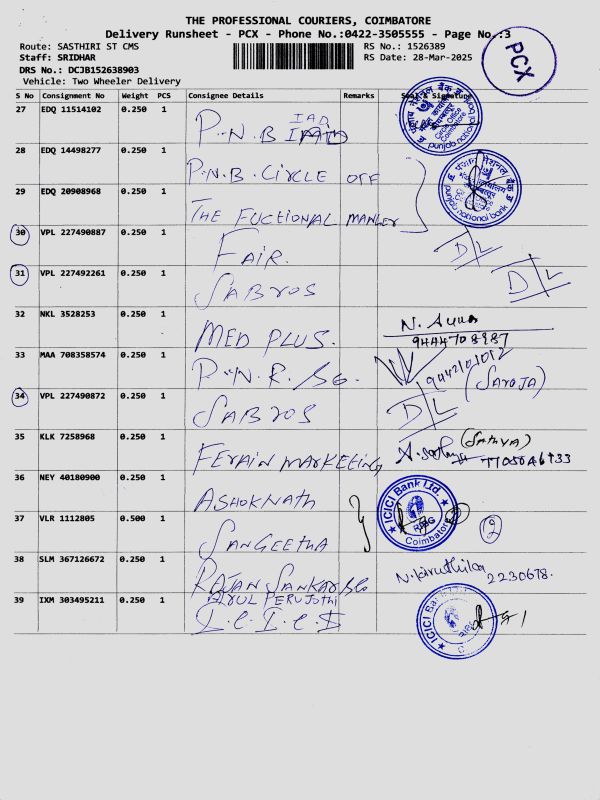 THE PROFESSIONAL COURIERS, COIMBATORE
Delivery Runsheet - PCX - Phone No.:0422-3505555 - Page No.:3
Route: SASTHIRI ST CMS
RS No.: 1526389
Staff: SRIDHAR
RS Date: 28-Mar-2025
DRS No.: DCJB152638903
Vehicle: Two Wheeler Delivery
PCX
S No Consignment No Weight PCS Consignee Details Remarks Seal & Signature
27 EDQ 11514102 0.250 1 P.N.B IAD
28 EDQ 14498277 0.250 1 P.N.B. CIRCLE OFF
29 EDQ 20908968 0.250 1 THE FUCTIONAL
पंजाब नैशनल बैंक
Circle Office
Coimbatore
punjab national bank
30 VPL 227490887 0.250 1 FAIR. D/L
31 VPL 227492261 0.250 1 SABROS D/L
32 NKL 3528253 0.250 1 MED PLUS. N.
33 MAA 708358574 0.250 1 (SAROJA)
34 VPL 227490872 0.250 1 SABROS D/L
35 KLK 7258968 0.250 1 MARKETING (SATHYA)
36 NEY 40180900 0.250 1 ASHOKNATH
37 VLR 1112805 0.500 1 SANGEETHA
ICICI Bank Ltd.
RIBG
Coimbatore
2
38 SLM 367126672 0.250 1 RAJAN SANKAR 2230678.
39 IXM 303495211 0.250 1 ARUL PERUJOTHI
ICICI Bank